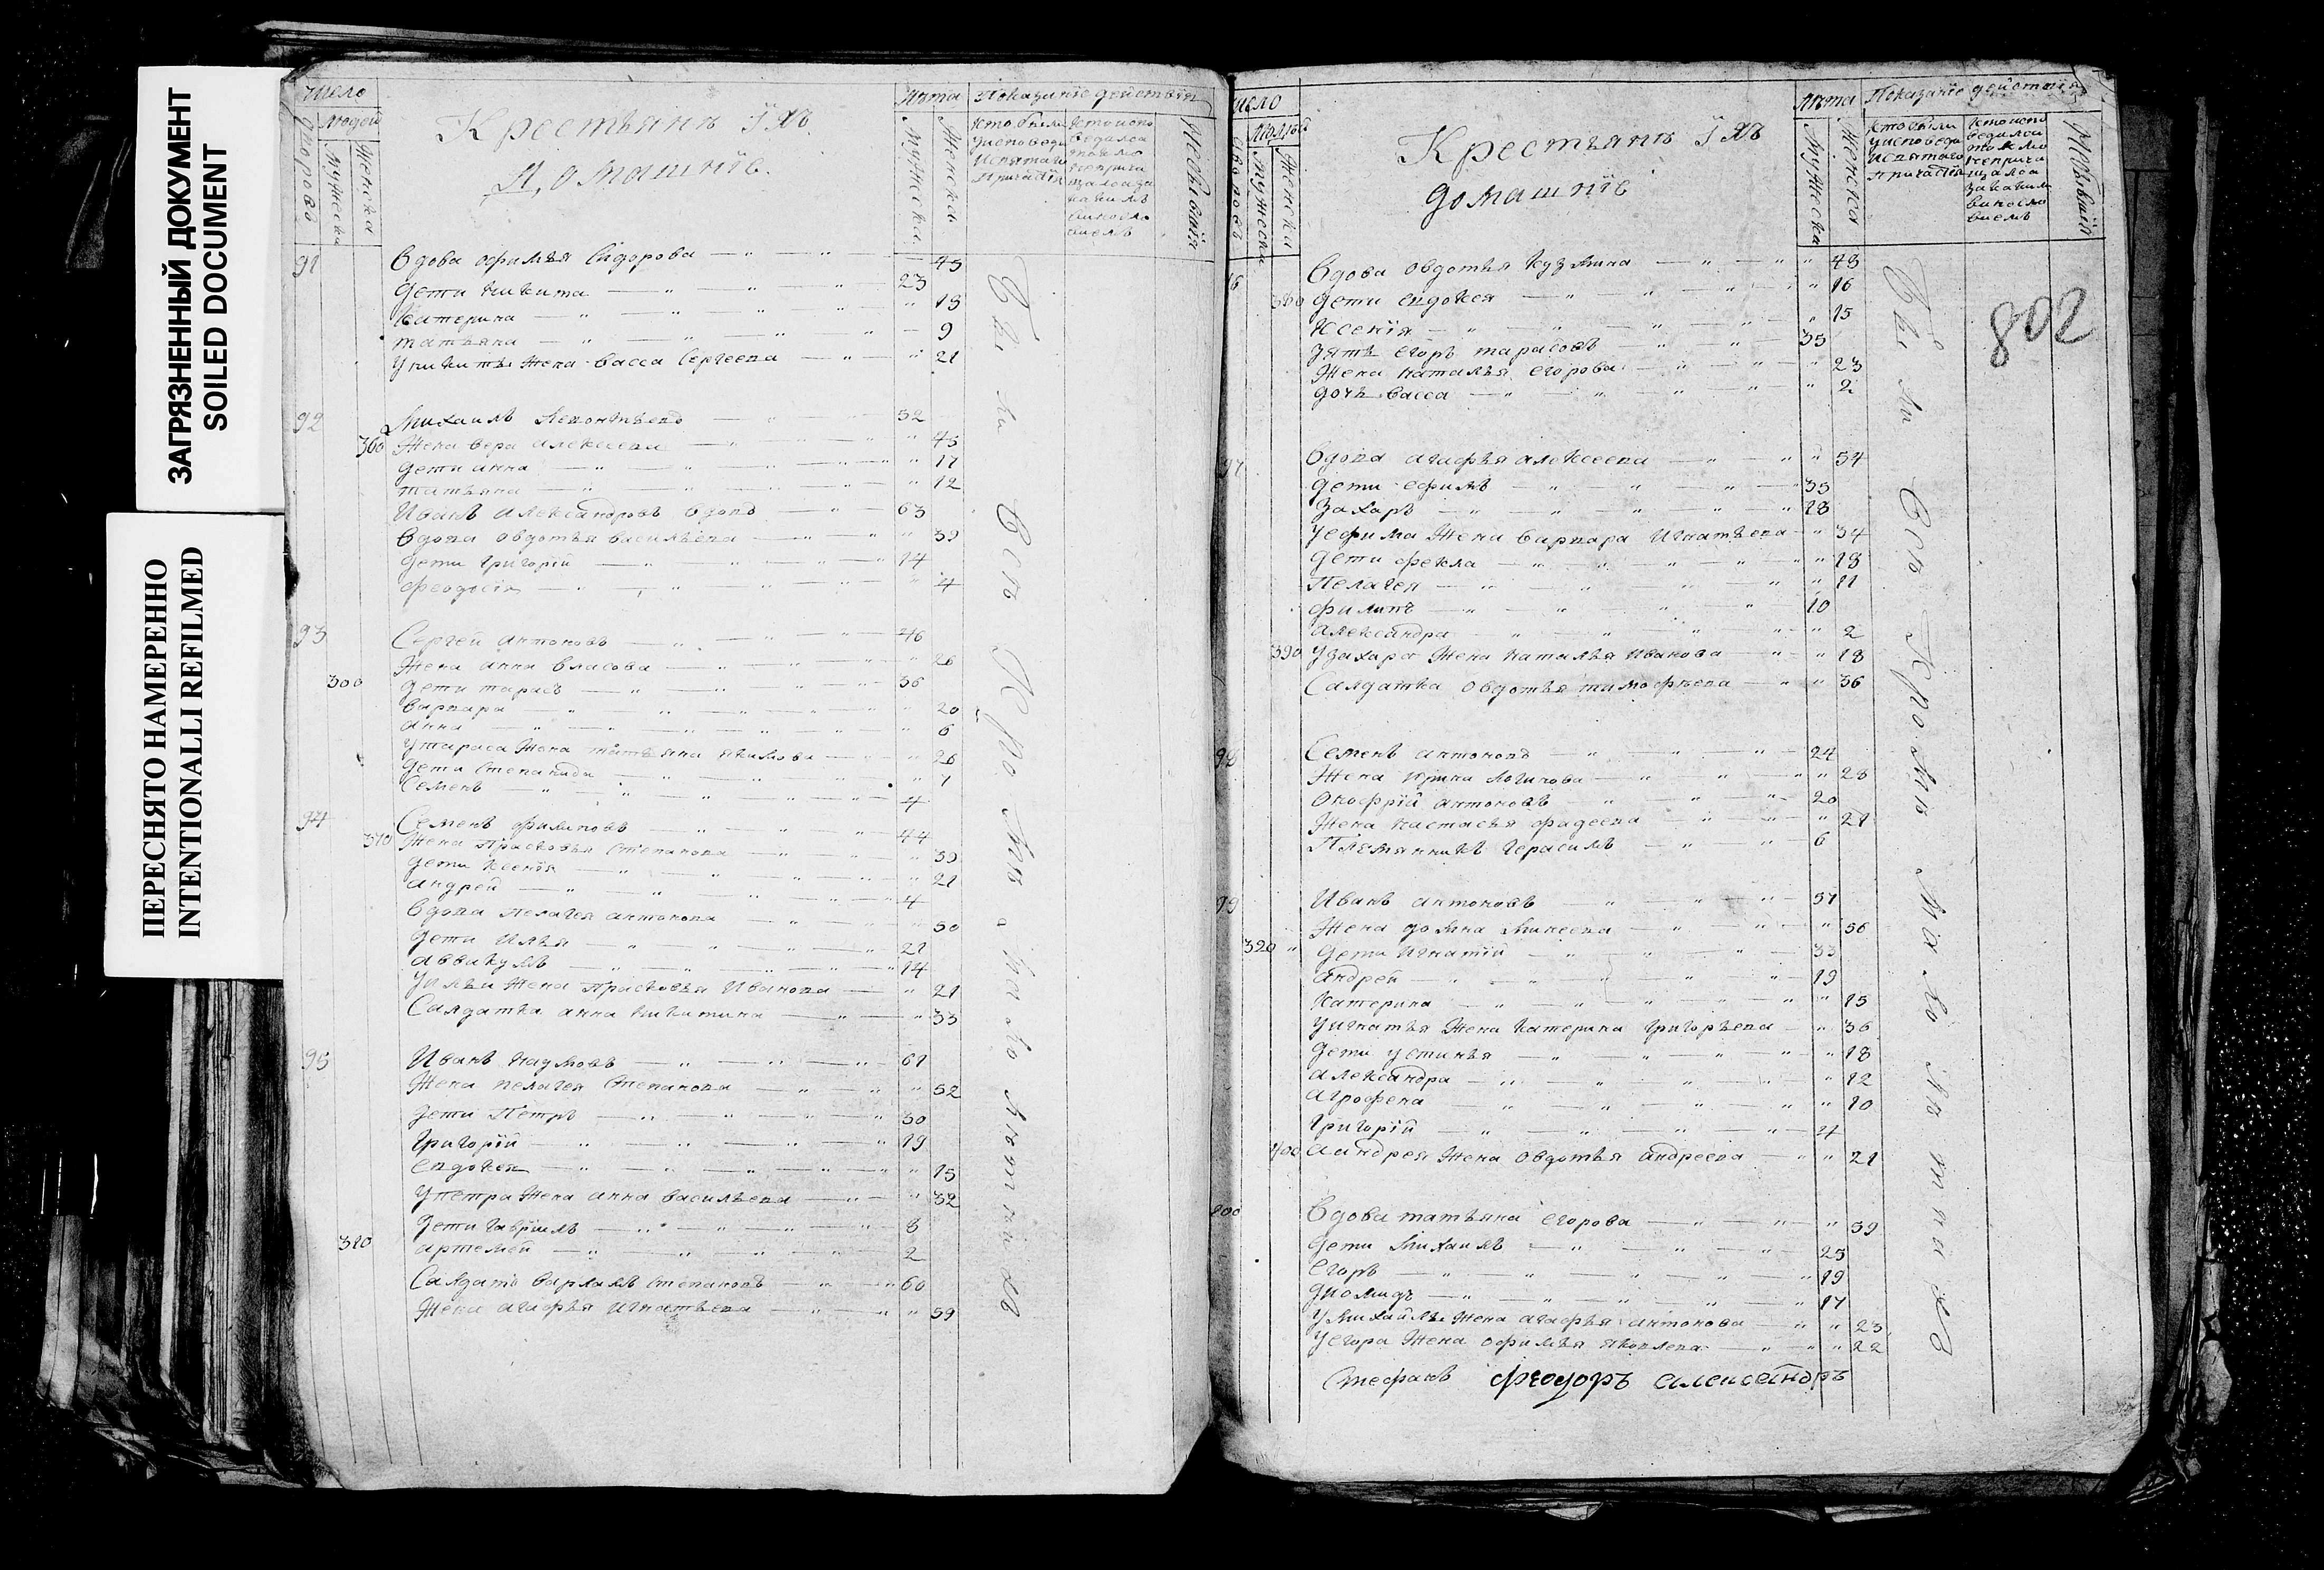 ЗАГРЯЗНЕННЫЙ ДОКУМЕНТ
SOILED DOCUMENT
ПЕРЕСНЯТО НАМЕРЕННО
INTENTIONALLI REFILMED
число
Людей
дворовъ
мужеска
женска
Крестьянъ ихъ
Домашнїе.
Лѣта
мужеска
женска
Показанїе действїя
91 Вдова офимья Сидорова 45
Дети никита 23
Катерина 13
татьяна 9
У никиты жена васса Сергеева 21
92 Михаилъ Леонтьевъ 52
360 Жена вера алексеева 45
Дети анна 17
татьяна 12
Иванъ александровъ вдовъ 63
Вдова овдотья васильева 39
Дети григорїй 14
феодосїя 4
93 Сергей антоновъ 46
Жена анна власова 26
300 Дети тарасъ 36
варвара 20
анна 6
У тараса жена татьяна якимова 26
Дети степанида 7
Семенъ 4
94 Семенъ филиповъ 44
370 Жена прасковья степанова 39
Дети ксенїя 21
андрей 4
Вдова пелагея антонова 50
Дети Илья 21
аввакумъ 14
У ильи жена прасковья Иванова 21
Салдатка анна никитина 33
95 Иванъ наумовъ 61
Жена пелагея степанова 52
Дети петръ 30
григорїй 19
евдокея 15
У петра жена анна васильева 32
Дети гаврїилъ 8
310 артемей 2
Салдатъ варламъ степановъ 60
Жена агафья игнатьева 59
Были Вси Кроме малолетнихъ
число
Людей
мужеска
женска
Крестьянъ ихъ
домашнїе
Лѣта
мужеска
женска
Показанїе действїя
802
Вдова овдотья кузмина 43
380 Дети евдокея 16
Ксенїя 15
зять егоръ тарасовъ 35
Жена наталья егорова 23
дочь васса 2
97 Вдова агафья алексеева 54
Дети ефимъ 35
захаръ 18
У ефима жена варвара игнатьева 34
Дети фекла 13
Пелагея 11
филипъ 10
александра 2
390 У захара жена наталья иванова 18
Салдатка овдотья тимофеева 36
98 Семенъ антоновъ 24
Жена ирина логинова 28
Онофрїй антоновъ 20
Жена настасья фадеева 21
Племянникъ герасимъ 6
99 Иванъ антоновъ 57
Жена домна минеева 56
320 Дети игнатїй 33
андрей 19
катерина 15
У игнатья жена катерина григорьева 36
Дети устинья 18
александра 12
агрофена 10
григорїй 4
400 андрея жена овдотья андреева 21
Вдова татьяна егорова 59
Дети михаилъ 25
егоръ 19
диомидъ 17
У михайлы жена агафья антонова 23
У егора жена офимья яковлева 22
Стефанъ феодоръ александръ
Были Вси Кроме Малолетнихъ